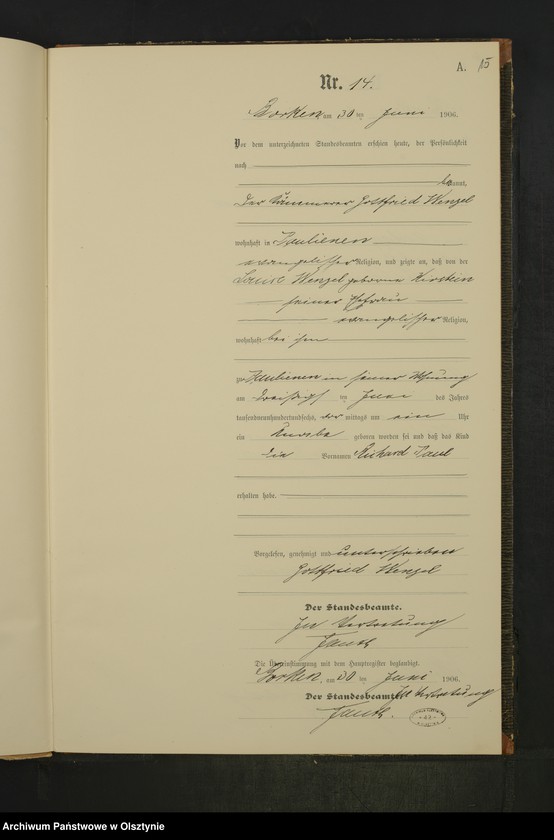 A. 15
Nr. 14.
Borken, am 30 ten Juni 1906.
Vor dem unterzeichneten Standesbeamten erschien heute, der Persönlichkeit
nach
bekannt,
Der Kämmerer Gottfried Wenzel
wohnhaft in
evangelischer Religion, und zeigte an, daß von der
Wenzel geborene Kirstein
seiner Ehefrau
evangelischer Religion,
wohnhaft bei ihm
zu in seiner Wohnung
am dreißigsten ten Juni des Jahres
tausendneunhundertundsechs, vormittags um ein Uhr
ein Knabe geboren worden sei und daß das Kind
die Vornamen Richard Paul
erhalten habe.
Vorgelesen, genehmigt und unterschrieben
Gottfried Wenzel
Der Standesbeamte.
In Vertretung
Die Übereinstimmung mit dem Hauptregister beglaubigt.
Borken, am 30 ten Juni 1906.
Der Standesbeamte. In Vertretung
Archiwum Państwowe w Olsztynie